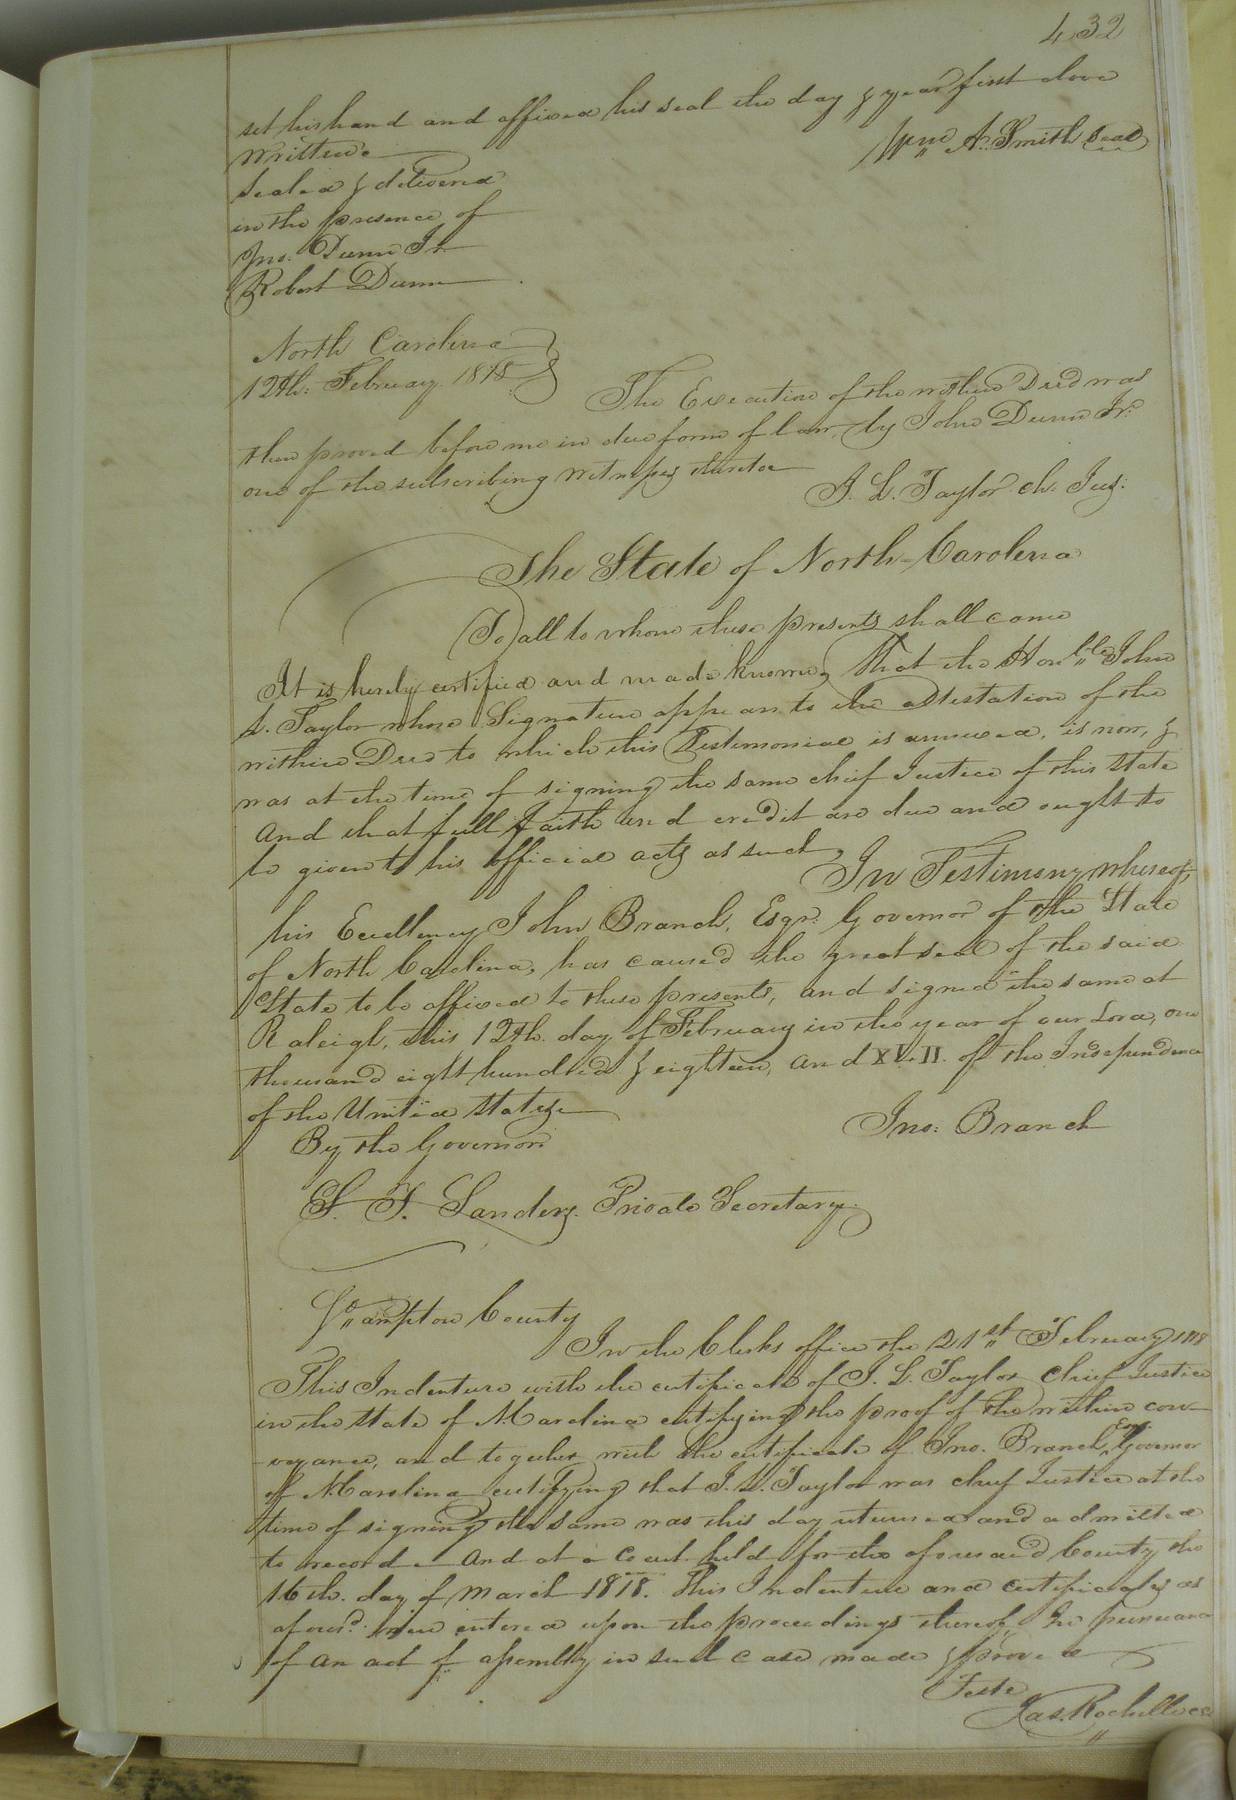 432
set his hand and affixed his seal the day & year first above
Written
Wm A. Smith Seal
Sealed & delivered
in the presence of
Jno. Dunn Jr.
Robert Dunn
North Carolina
12th: February 1818
The Execution of the within Deed was
then proved before me in due form of law, by John Dunn Jr.
one of the subscribing witnesses thereto
J. L. Taylor ch. Jus:
The State of North-Carolina
To all to whom these presents shall come
It is hereby certified and made known, That the Honble John
L. Taylor whose Signature appears to the attestation of the
within Deed to which this Testimonial is annexed, is now, &
was at the time of signing the same chief Justice of this State
And that full faith and credit are due and ought to
be given to his official acts as such,
In Testimony whereof,
his Excellency John Branch, Esqr. Governor of the State
of North Carolina, has caused the great seal of the said
State to be affixed to these presents, and signed the same at
Raleigh, this 12th. day of February in the year of our Lord, one
thousand eight hundred & eighteen, and XLII. of the Independence
of the United States
By the Governor
Jno: Branch
Sanders. Private Secretary.
So,,ampton County
In the Clerks office the 21st February 1818
This Indenture with the certificate of J. L. Taylor Chief Justice
in the State of N.Carolina certifying the proof of the within con-
veyance, and together with the certificate of Jno. Branch, Esqr. Governor
of N.Carolina certifying that J. L. Taylor was chief Justice at the
time of signing the same was this day returned and admitted
to record And at a Court held for the aforesaid County the
16th. day of March 1818. This Indenture and certificates as
aforsd. were entered upon the proceedings thereof, In pursuance
of an act of assembly in such case made & provided
Teste
Jas. Rochelle